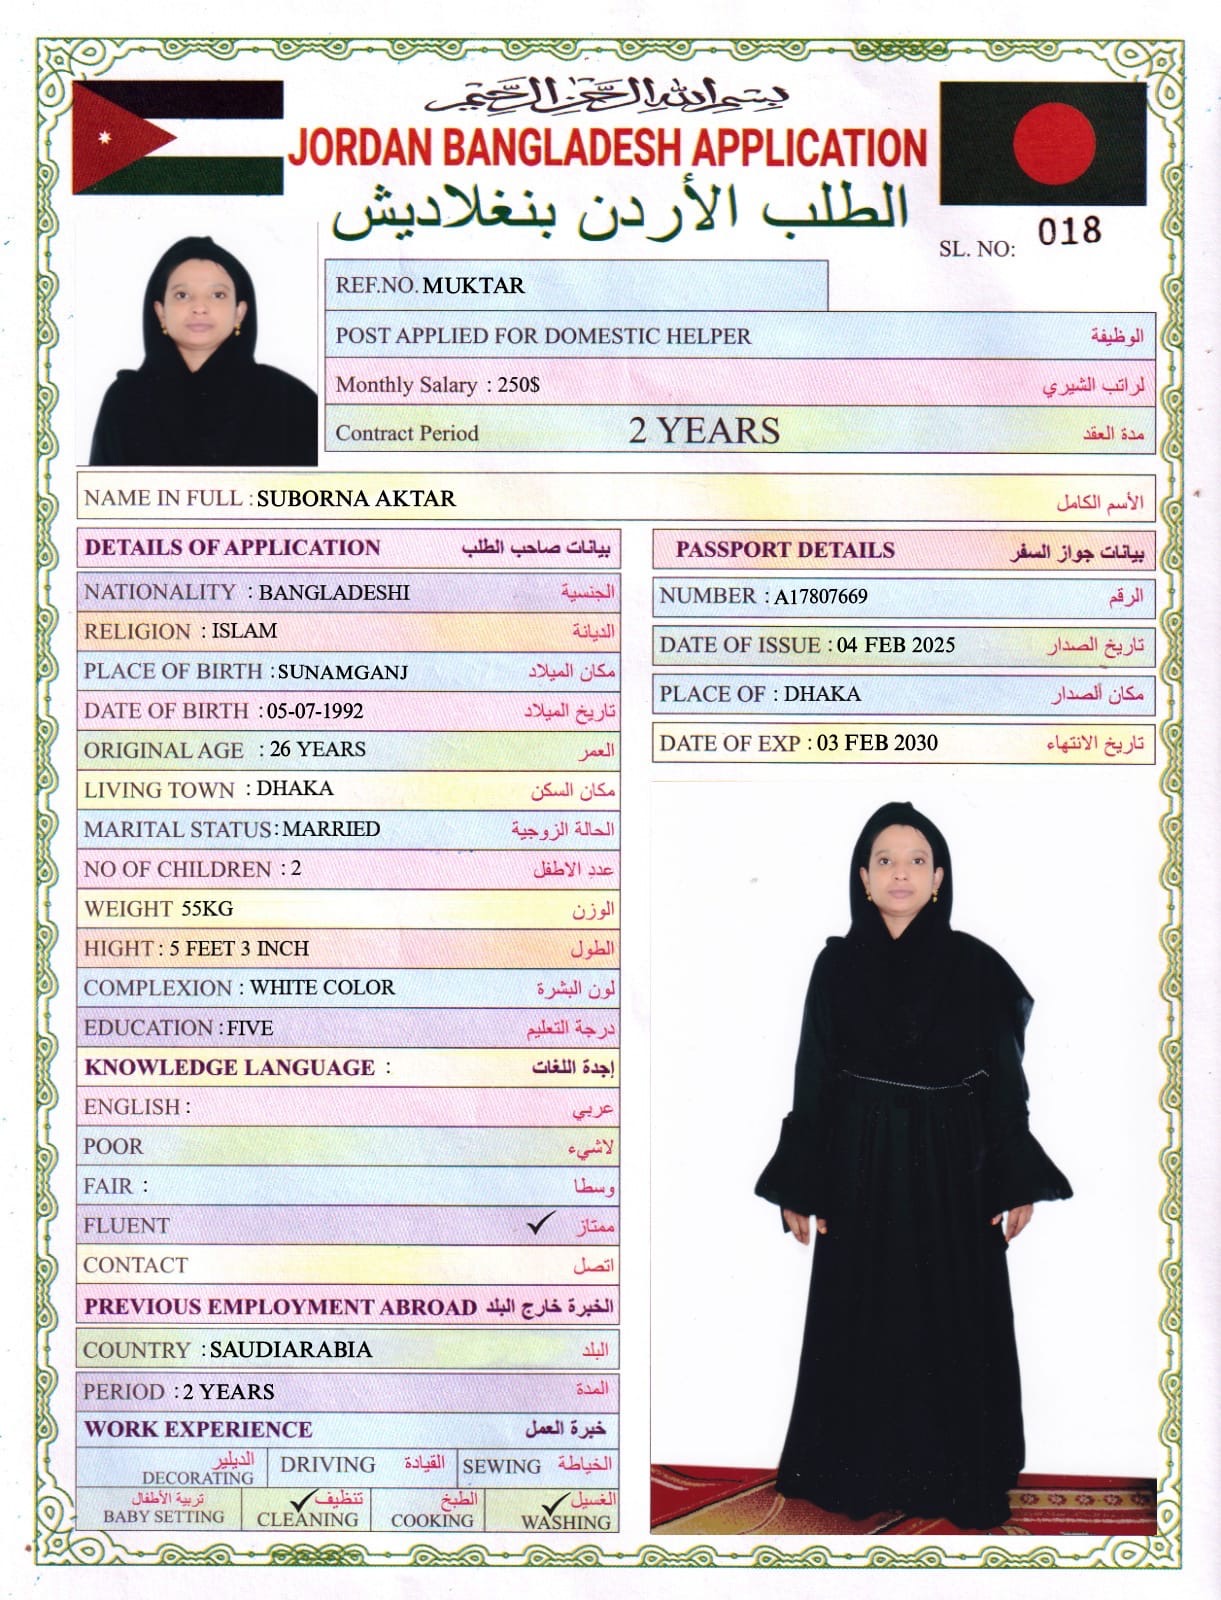 بسم الله الرحمن الرحيم
JORDAN BANGLADESH APPLICATION
الطلب الأردن بنغلاديش
SL. NO: 018
REF.NO. MUKTAR
POST APPLIED FOR DOMESTIC HELPER الوظيفة
Monthly Salary : 250$ لراتب الشيري
Contract Period 2 YEARS مدة العقد
NAME IN FULL : SUBORNA AKTAR الأسم الكامل
DETAILS OF APPLICATION بيانات صاحب الطلب
NATIONALITY : BANGLADESHI الجنسية
RELIGION : ISLAM الديانة
PLACE OF BIRTH : SUNAMGANJ مكان الميلاد
DATE OF BIRTH : 05-07-1992 تاريخ الميلاد
ORIGINAL AGE : 26 YEARS العمر
LIVING TOWN : DHAKA مكان السكن
MARITAL STATUS : MARRIED الحالة الزوجية
NO OF CHILDREN : 2 عدد الاطفل
WEIGHT 55KG الوزن
HIGHT : 5 FEET 3 INCH الطول
COMPLEXION : WHITE COLOR لون البشرة
EDUCATION : FIVE درجة التعليم
KNOWLEDGE LANGUAGE : إجدة اللغات
ENGLISH : عربي
POOR لاشيء
FAIR : وسطا
FLUENT ✓ ممتاز
CONTACT اتصل
PREVIOUS EMPLOYMENT ABROAD الخبرة خارج البلد
COUNTRY : SAUDIARABIA البلد
PERIOD : 2 YEARS المدة
WORK EXPERIENCE خبرة العمل
الديلير DECORATING DRIVING القيادة SEWING الخياطة
تربية الأطفال تنظيف ✓ الطبخ الغسيل ✓
BABY SETTING CLEANING COOKING WASHING
PASSPORT DETAILS بيانات جواز السفر
NUMBER : A17807669 الرقم
DATE OF ISSUE : 04 FEB 2025 تاريخ الصدار
PLACE OF : DHAKA مكان ألصدار
DATE OF EXP : 03 FEB 2030 تاريخ الانتهاء